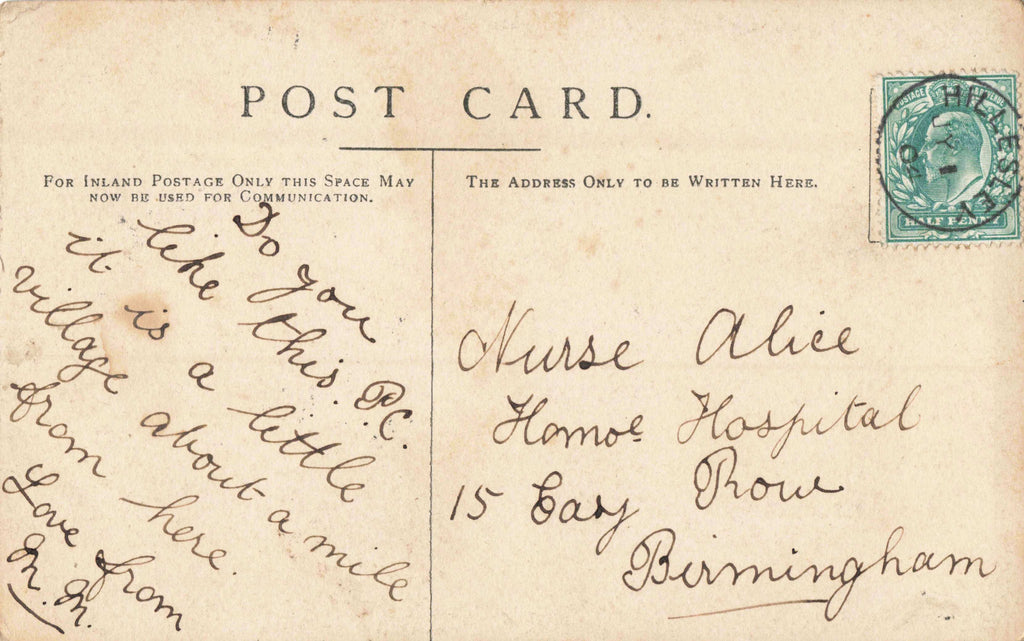 POST CARD.
FOR INLAND POSTAGE ONLY THIS SPACE MAY
NOW BE USED FOR COMMUNICATION.
THE ADDRESS ONLY TO BE WRITTEN HERE.
POSTAGE
HALF PENNY
HILLESLEY
JY 1
04
Do you
like this P.C.
it is a little
village about a mile
from here.
Love from
Nurse Alice
Homoe Hospital
15 Easy Row
Birmingham